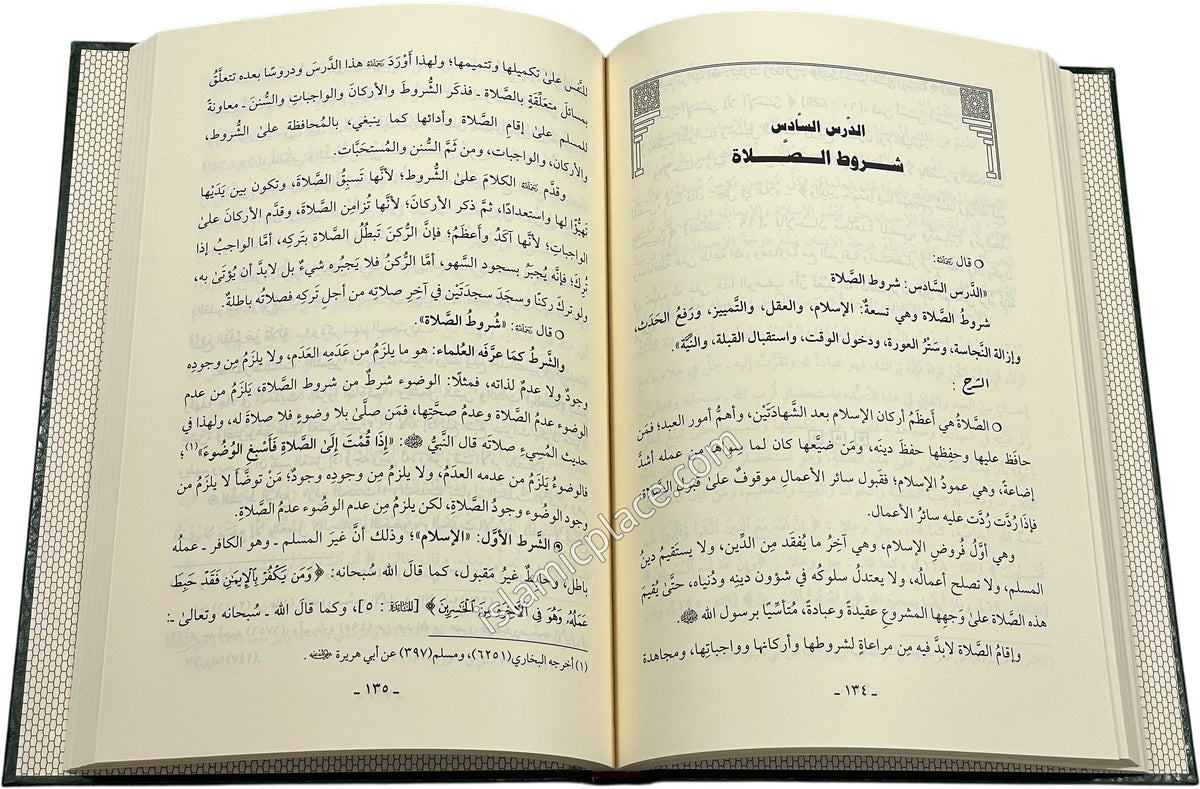 الدَّرس السَّادس
شـروط الـصَّـلاة
○ قال رَحِمَهُ اللَّهُ:
«الدَّرس السَّادس: شروط الصَّلاة
شروطُ الصَّلاة وهي تسعةٌ: الإسلام، والعقل، والتَّمييز، ورَفعُ الحَدَث،
وإزالة النَّجاسة، وسَتْرُ العورة، ودخول الوقت، واستقبال القبلة، والنِّيَّة».
الشرح :
○ الصَّلاةُ هي أعظَمُ أركان الإسلام بعد الشَّهادتَيْن، وأهمُّ أمور العبد؛ فمَن
حافَظ عليها وحفِظها حفظَ دينَه، ومَن ضيَّعها كان لما سِواها من عمله أشدَّ
إضاعةً، وهي عمودُ الإسلام؛ فقَبول سائر الأعمالِ موقوفٌ علىٰ قبول الصَّلاة
فإذا رُدَّت رُدَّت عليه سائرُ الأعمال.
وهي أوَّلُ فُروضِ الإسلام، وهي آخِرُ ما يُفقَد مِن الدِّين، ولا يستَقيمُ دينُ
المسلم، ولا تصلح أعمالُه، ولا يعتدلُ سلوكُه في شؤون دينِه ودُنياه، حتَّىٰ يُقيمَ
هذه الصَّلاةَ علىٰ وَجهها المشروعِ عقيدةً وعبادةً، مُتأسِّيًا برسول الله ﷺ.
وإقامُ الصَّلاة لابدَّ فيه مِن مراعاةٍ لشروطها وأركانها وواجباتِها، ومجاهدة
ـ ١٣٤ ـ
للنَّفس علىٰ تكميلها وتتميمها؛ ولهذا أوْرَدَ رَحِمَهُ اللَّهُ هذا الدَّرسَ ودروسًا بعده تتعلَّقُ
بمسائلَ متعلِّقةٍ بالصَّلاة ـ فذكَر الشُّروطَ والأركانَ والواجباتِ والسُّننَ ـ معاونةً
للمسلم علىٰ إقام الصَّلاة وأدائها كما ينبغي، بالمُحافظة علىٰ الشُّروط،
والأركان، والواجبات، ومن ثَمَّ السُّنن والمُستحَبَّات.
وقدَّم رَحِمَهُ اللَّهُ الكلامَ علىٰ الشُّروط؛ لأنَّها تَسبِقُ الصَّلاةَ، وتكون بين يَدَيْها
تهيُّؤًا لها واستعدادًا، ثمَّ ذكر الأركانَ؛ لأنَّها تُزامِنُ الصَّلاةَ، وقدَّم الأركانَ علىٰ
الواجباتِ؛ لأنَّها آكَدُ وأعظَمُ؛ فإنَّ الرُّكنَ تَبطُلُ الصَّلاة بتَركِه، أمَّا الواجبُ إذا
تُرِكَ؛ فإنَّه يُجبَرُ بسجود السَّهو، أمَّا الرُّكنُ فلا يَجبُره شيءٌ بل لابدَّ أن يُؤتَىٰ به،
ولو تركَ ركنًا وسجَدَ سجدَتَيْن في آخِرِ صلاتِه من أجلِ تَركِه فصلاتُه باطلةٌ.
○ قال رَحِمَهُ اللَّهُ: «شُروطُ الصَّلاة»
والشَّرطُ كمَا عرَّفَه العُلماء: هو ما يلزَمُ من عَدَمِه العَدَم، ولا يلزَمُ مِن وجودِه
وجودٌ ولا عدمٌ لذاته، فمثلًا: الوضوء شرطٌ من شروط الصَّلاة، يَلزَمُ من عدم
الوضوء عدمُ الصَّلاة وعدمُ صحَّتِها، فمَن صلَّىٰ بلا وضوءٍ فلا صلاةَ له، ولهذا في
حديث المُسِيءِ صلاتَه قال النَّبيُّ ﷺ: «إِذَا قُمْتَ إِلَىٰ الصَّلاةِ فَأَسْبِغِ الوُضُوءَ»(١)؛
فالوضوءُ يَلزَمُ من عدمِه العدَمُ، ولا يلزم مِن وجودِه وجودٌ؛ مَن توضَّأ لا يلزَمُ من
وجود الوضُوء وجودُ الصَّلاة، لكن يلزمُ مِن عدم الوضُوء عدمُ الصَّلاةِ.
◉ الشَّرط الأوَّل: «الإسلام»؛ وذلك أنَّ غيرَ المسلم ـ وهو الكافر ـ عملُه
باطل، وحابطٌ غيرُ مقبول، كما قالَ الله سُبحانه: ﴿وَمَن يَكْفُرْ بِالْإِيمَٰنِ فَقَدْ حَبِطَ
عَمَلُهُ وَهُوَ فِي الْآخِرَةِ مِنَ الْخَٰسِرِينَ﴾ [المائدة : ٥]، وكما قالَ الله ـ سُبحانه وتعالىٰ ـ:
(١) أخرجه البخاري (٦٢٥١)، ومسلم (٣٩٧) عن أبي هريرة رَضِيَ اللَّهُ عَنْهُ.
ـ ١٣٥ ـ
islamicplace.com